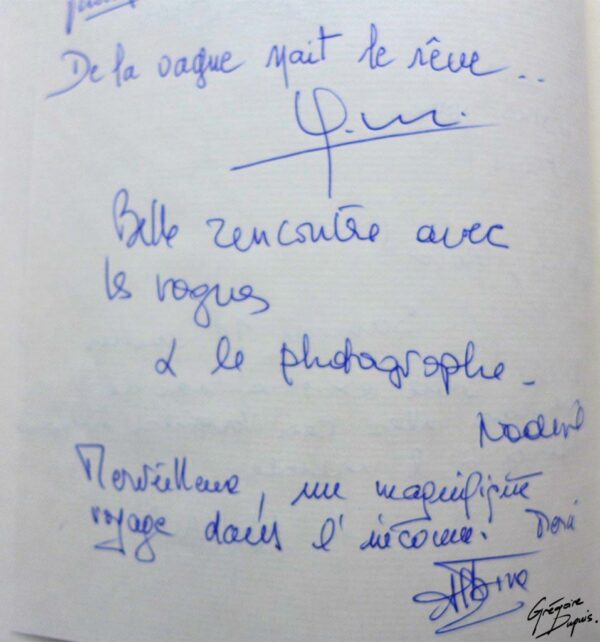 De la vague nait le rêve..
Belle rencontre avec
les vagues
& le photographe_
Nadine
Merveilleux, un magnifique
voyage dans l'inconnu. Merci
Grégoire
Dupuis.